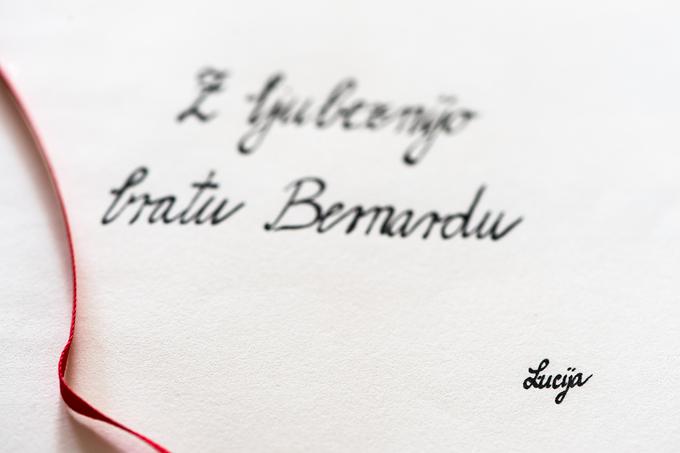 Z ljubeznijo
bratu Bernardu
Lucija